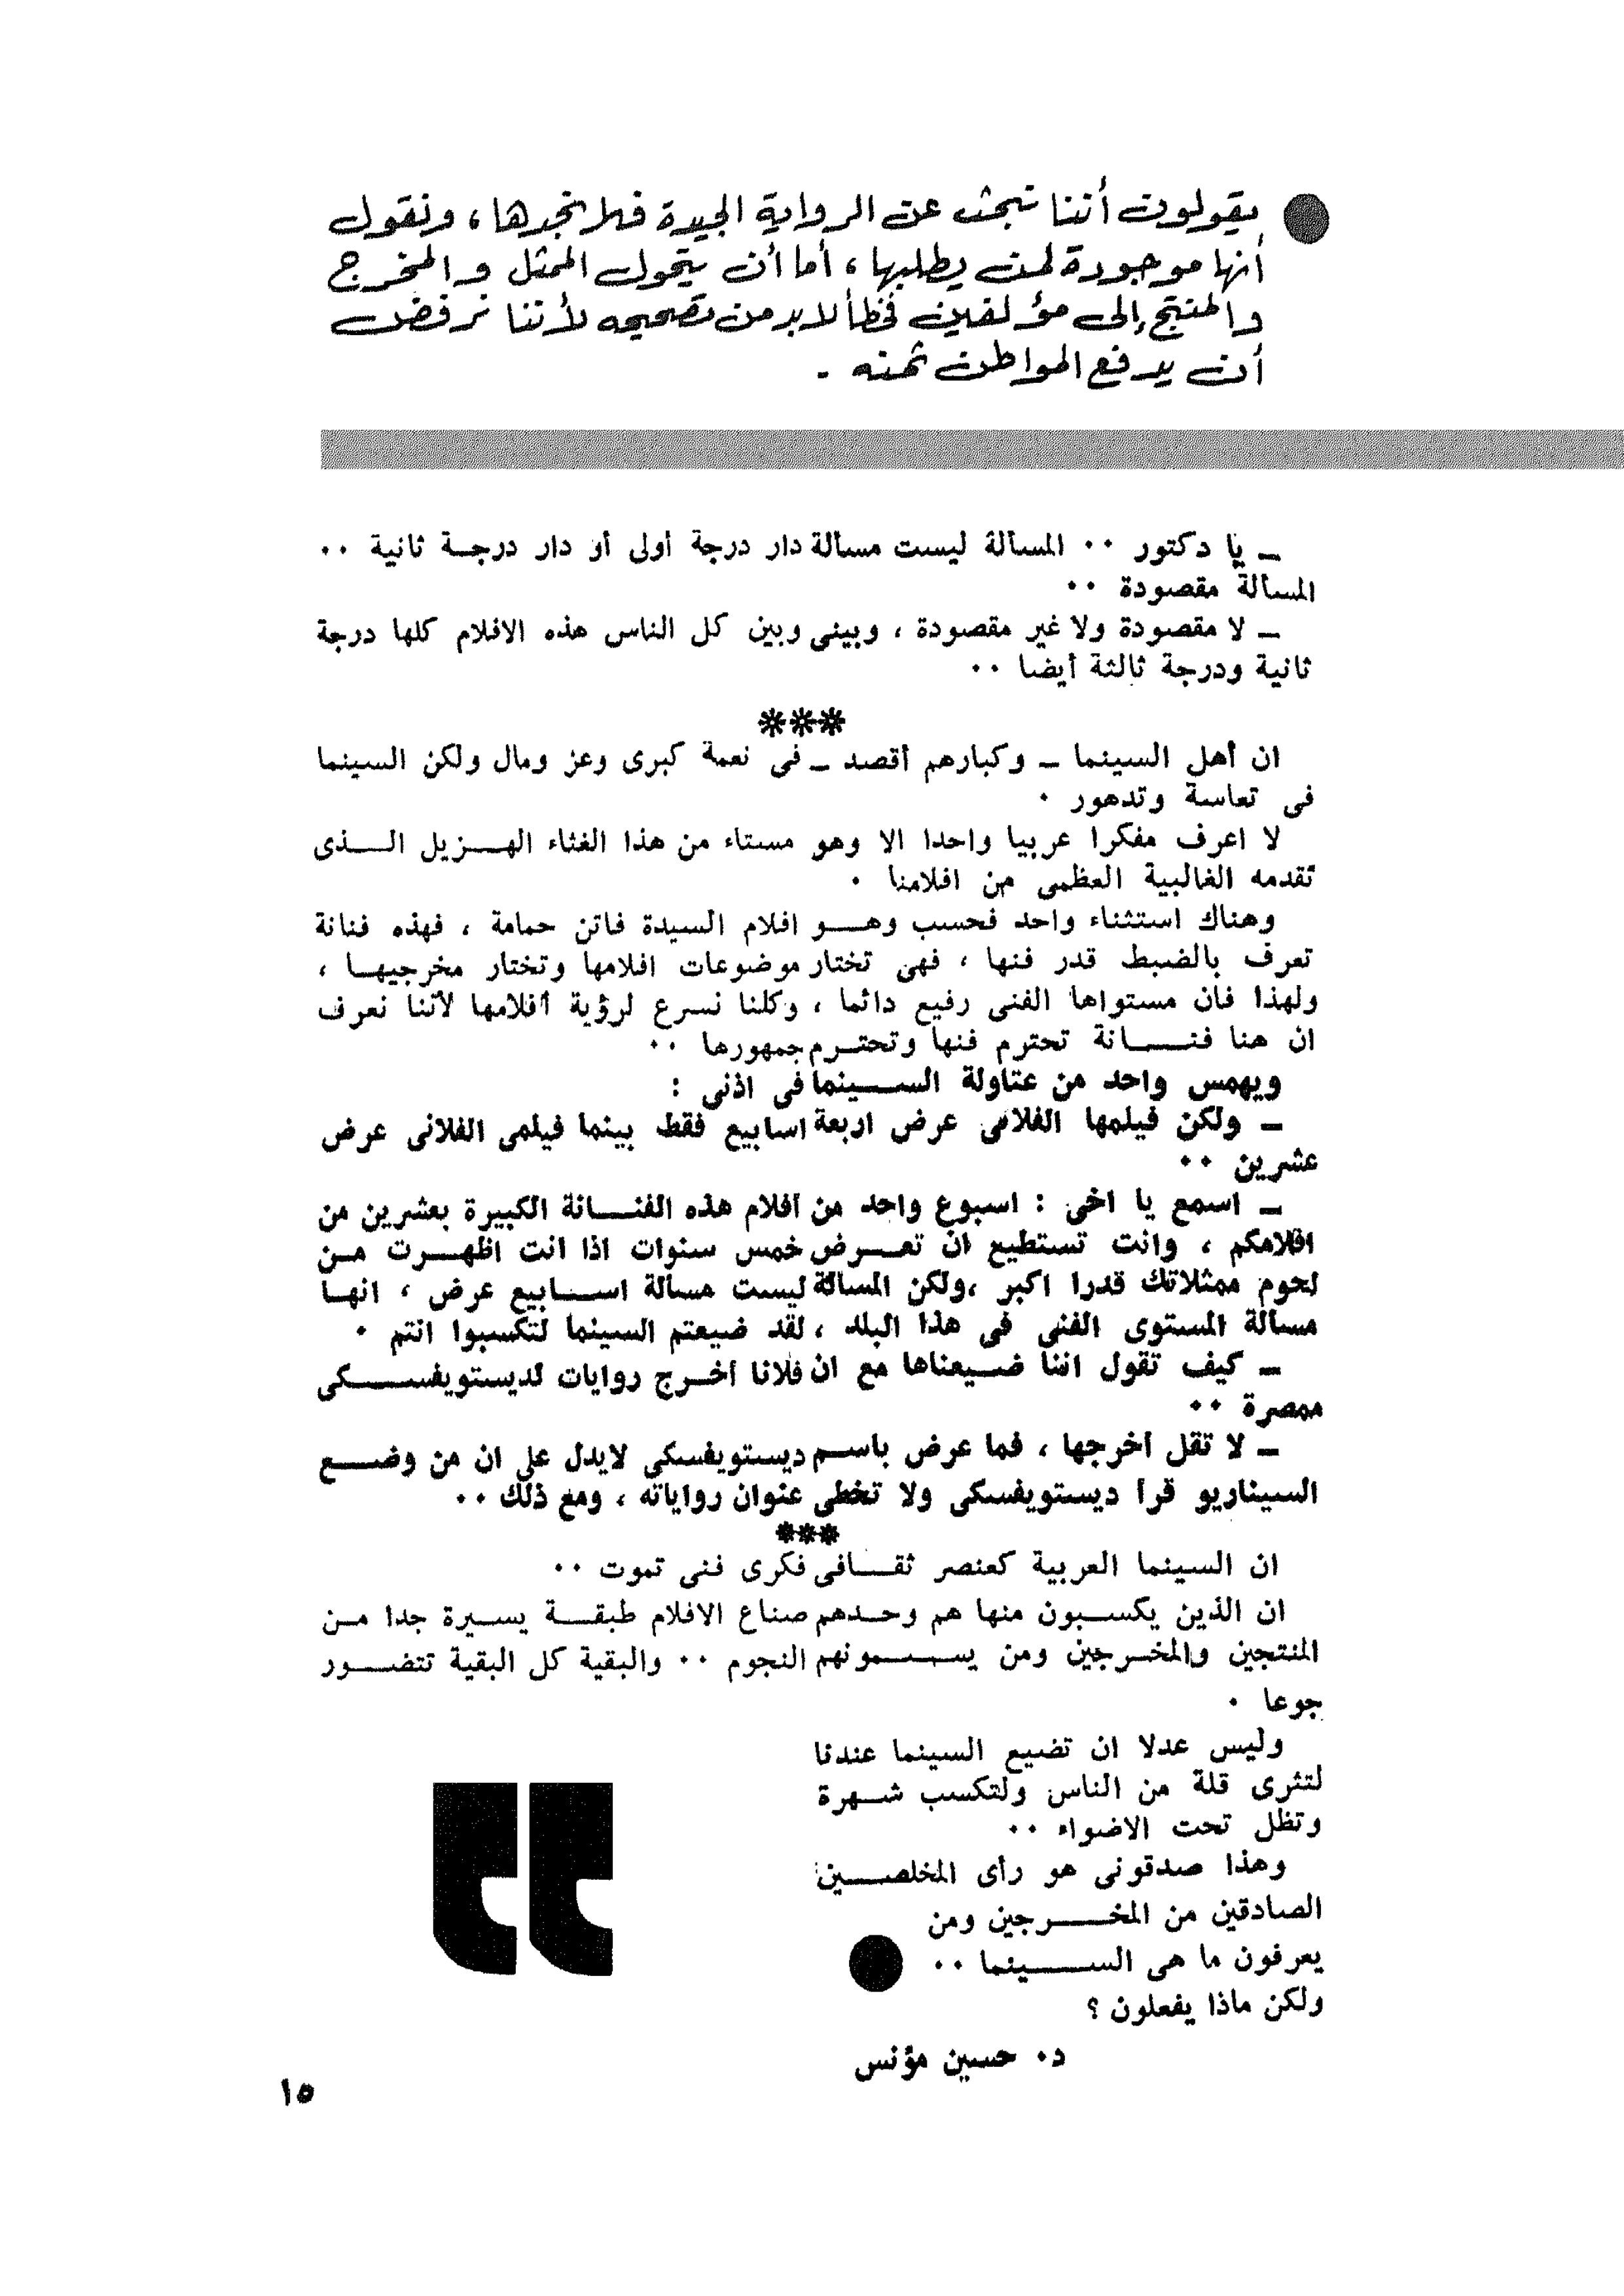 يقولون أننا نبحث عن الرواية الجيدة فلا نجدها ، ونقول
أنها موجودة لمن يطلبها ، أما أن يتحول الممثل والمخرج
والمنتج إلى مؤلفين فخطأ لابد من تصحيحه لأننا نرفض
أن يدفع المواطن ثمنه .
ـ يا دكتور ٠٠ المسألة ليست مسألة دار درجة أولى أو دار درجــة ثانية ٠٠
المسألة مقصودة ٠٠
ـ لا مقصودة ولا غير مقصودة ، وبينى وبين كل الناس هذه الافلام كلها درجة
ثانية ودرجة ثالثة أيضا ٠٠
***
ان أهل السينما ـ وكبارهم أقصد ـ فى نعمة كبرى وعز ومال ولكن السينما
فى تعاسة وتدهور ٠
لا اعرف مفكرا عربيا واحدا الا وهو مستاء من هذا الغثاء الهــزيل الــذى
تقدمه الغالبية العظمى من افلامنا ٠
وهناك استثناء واحد فحسب وهــو افلام السيدة فاتن حمامة ، فهذه فنانة
تعرف بالضبط قدر فنها ، فهى تختار موضوعات افلامها وتختار مخرجيهــا ،
ولهذا فان مستواها الفنى رفيع دائما ، وكلنا نسرع لرؤية أفلامها لأننا نعرف
ان هنا فنــانة تحترم فنها وتحتــرم جمهورها ٠٠
ويهمس واحد من عتاولة الســينما فى اذنى :
ـ ولكن فيلمها الفلانى عرض اربعة اسابيع فقط بينما فيلمى الفلانى عرض
عشرين ٠٠
ـ اسمع يا اخى : اسبوع واحد من أفلام هذه الفنــانة الكبيرة بعشرين من
افلامكم ، وانت تستطيع ان تعــرض خمس سنوات اذا انت اظهــرت مــن
لحوم ممثلاتك قدرا اكبر ،ولكن المسألة ليست مسألة اســابيع عرض ، انهــا
مسألة المستوى الفنى فى هذا البلد ، لقد ضيعتم السينما لتكسبوا انتم ٠
ـ كيف تقول اننا ضــيعناها مع ان فلانا أخــرج روايات لديستويفســكى
ممصرة ٠٠
ـ لا تقل أخرجها ، فما عرض باســم ديستويفسكى لايدل على ان من وضــع
السيناريو قرأ ديستويفسكى ولا تخطى عنوان رواياته ، ومع ذلك ٠٠
***
ان السينما العربية كعنصر ثقــافى فكرى فنى تموت ٠٠
ان الذين يكســبون منها هم وحــدهم صناع الافلام طبقــة يســيرة جدا مــن
المنتجين والمخــرجين ومن يســمونهم النجوم ٠٠ والبقية كل البقية تتضــور
جوعا ٠
وليس عدلا ان تضيع السينما عندنا
لتثرى قلة من الناس ولتكسب شــهرة
وتظل تحت الاضواء ٠٠
وهذا صدقونى هو رأى المخلصــين
الصادقين من المخــرجين ومن
يعرفون ما هى الســينما ٠٠
ولكن ماذا يفعلون ؟
د٠ حسين مؤنس
١٥